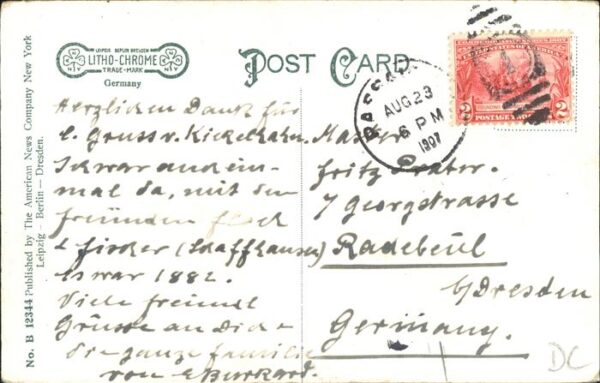 No. B 12344 Published by The American News Company New York
Leipzig - Berlin - Dresden.
LEIPZIG BERLIN DRESDEN
LITHO-CHROME
TRADE-MARK
NY NY
Germany
POST CARD
PASSAIC
AUG 23
6 PM
1907
2 2
POSTAGE
Herzlichen Dank für
l. Gruss v. Kickelhahn.
Ich war auch ein-
mal da, mit den
Freunden
& Fischer (Schaffhausen)
Es war 1882.
Viele freundl
Grüsse an Dich &
die ganze Familie
von E Burkard.
Fritz Prater.
7 Georgstrasse
Radebeul
b/Dresden
Germany.
DC